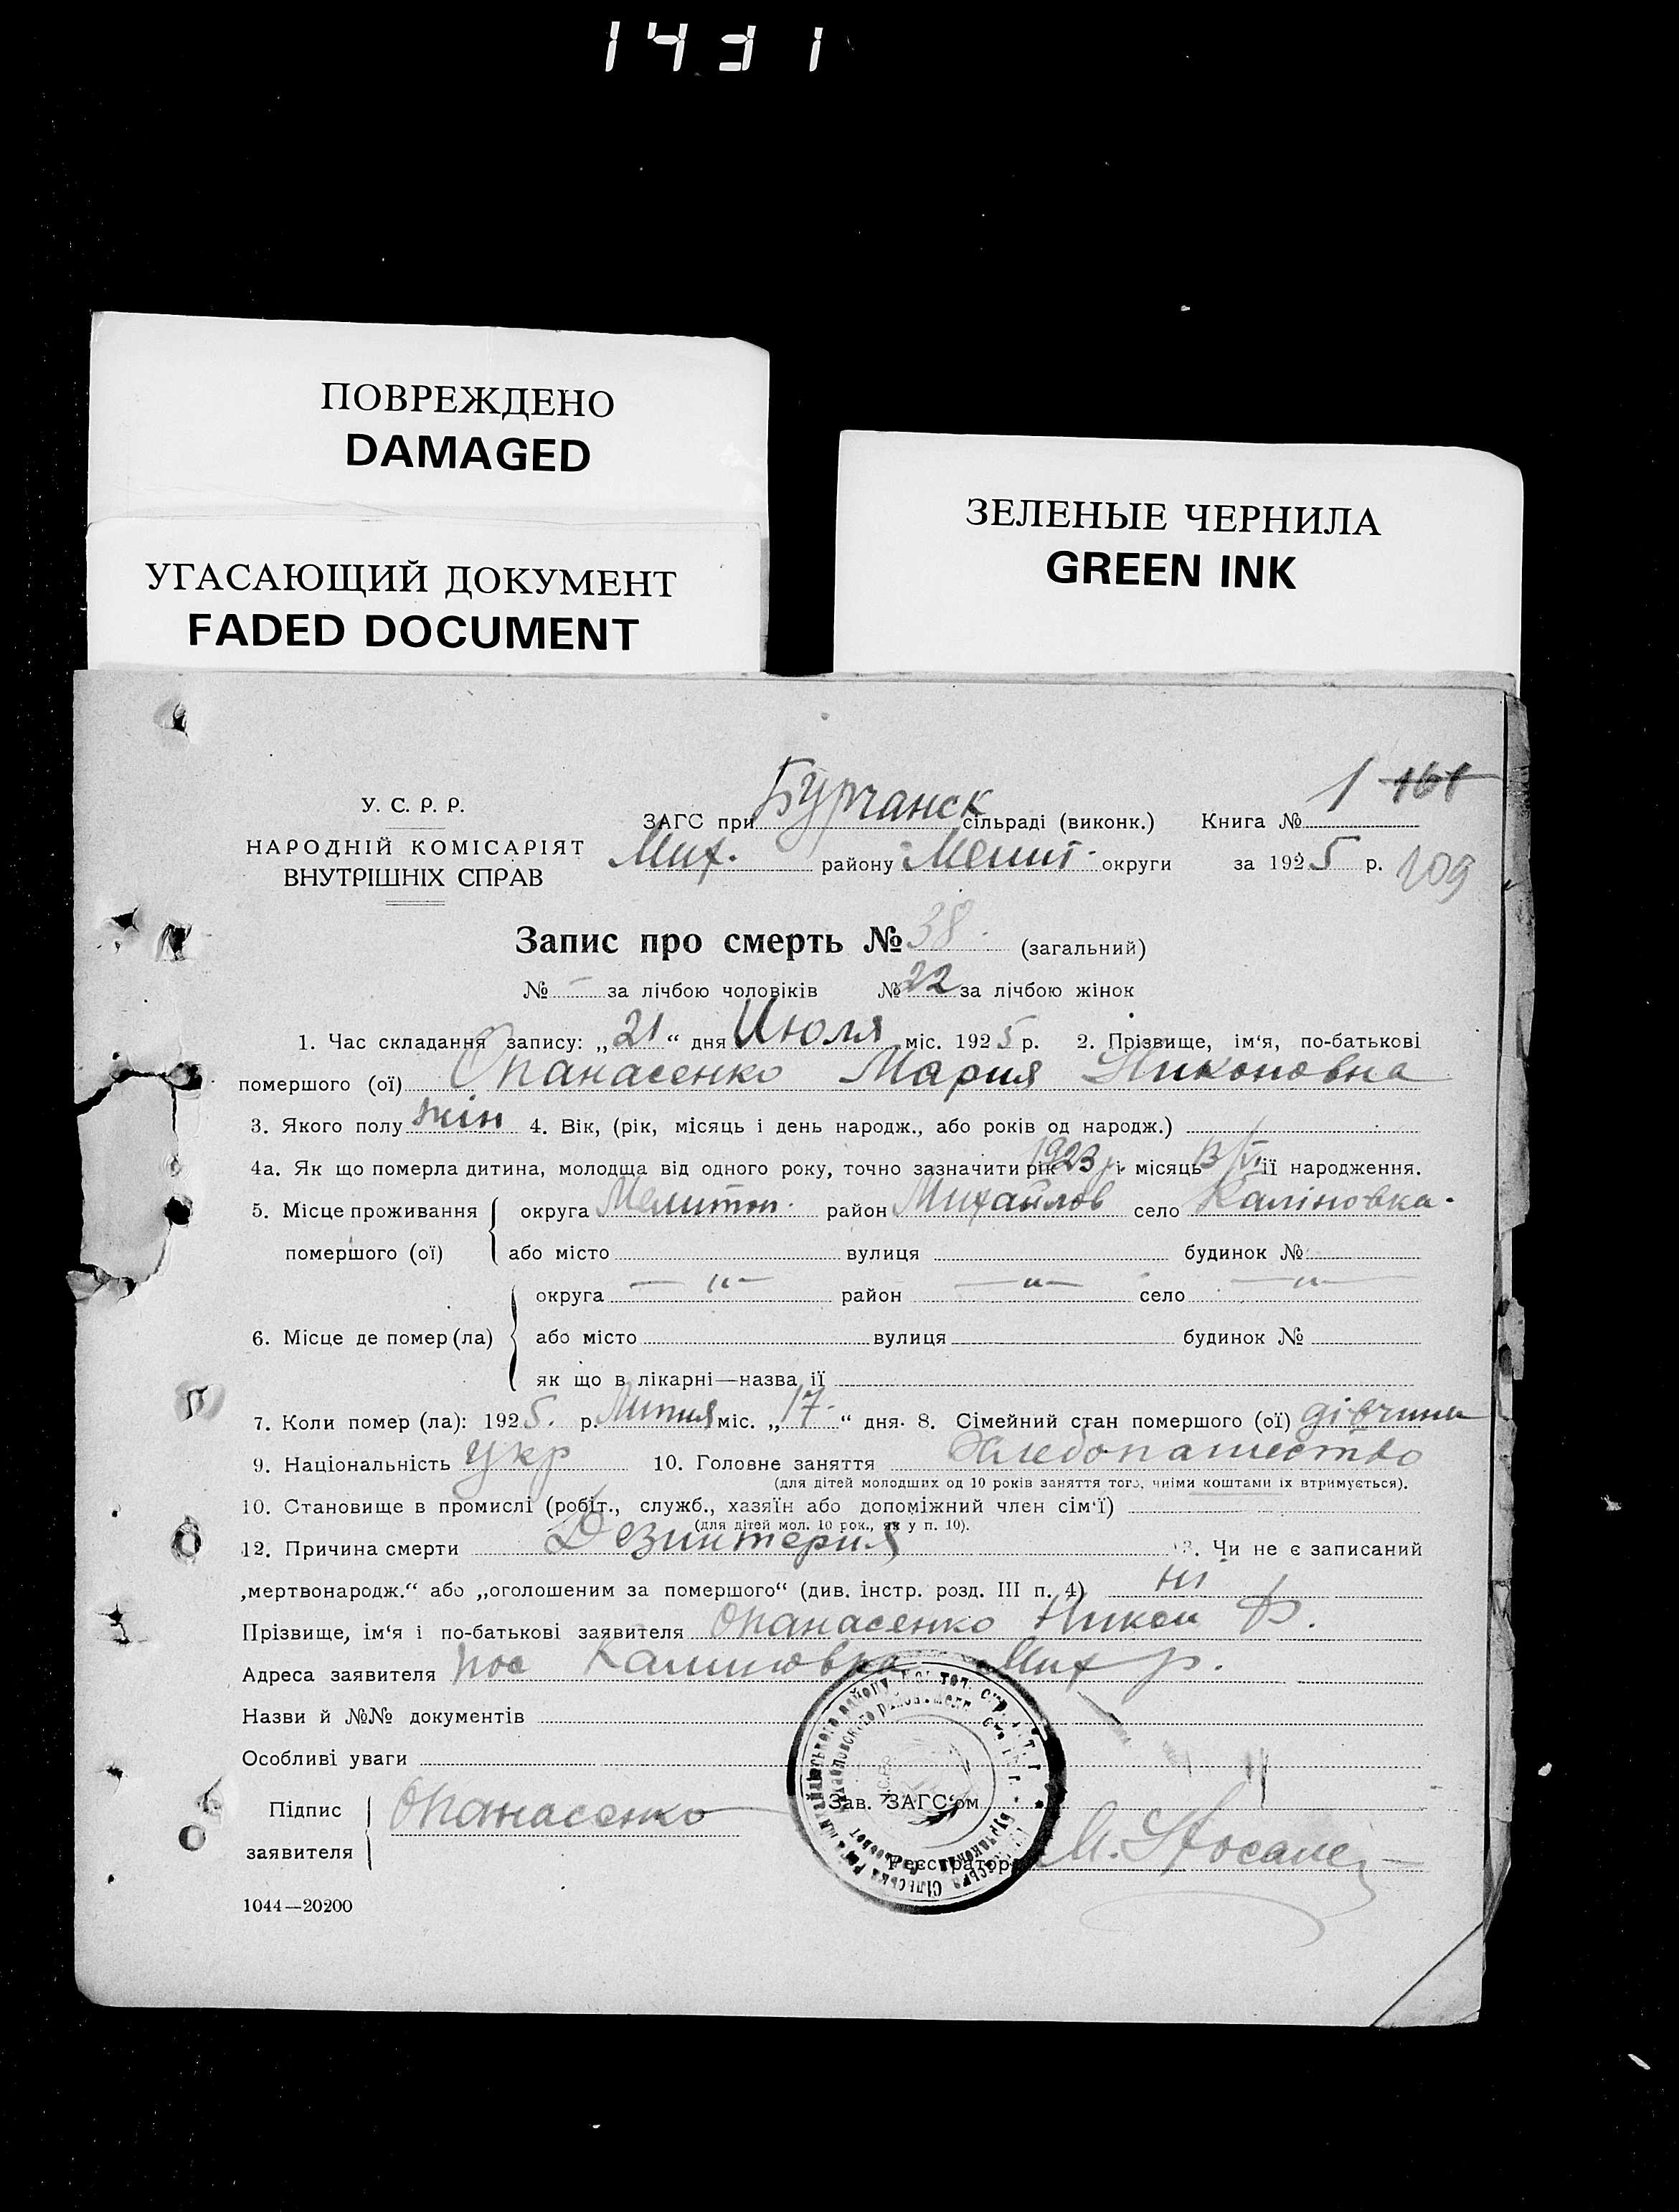 1431
ПОВРЕЖДЕНО
DAMAGED
УГАСАЮЩИЙ ДОКУМЕНТ
FADED DOCUMENT
ЗЕЛЕНЫЕ ЧЕРНИЛА
GREEN INK
У. С. Р. Р.
НАРОДНІЙ КОМІСАРІЯТ
ВНУТРІШНІХ СПРАВ
ЗАГС при Бурчанск сільраді (виконк.) Книга № 1 161
Мих. району Мелит. округи за 1925 р. 109
Запис про смерть № 38. (загальний)
№ - за лічбою чоловіків № 22 за лічбою жінок
1. Час складання запису: „21“ дня Июля міс. 1925 р. 2. Прізвище, ім‘я, по-батькові
помершого (ої) Опанасенко Мария Никоновна
3. Якого полу жін 4. Вік, (рік, місяць і день народж., або років од народж.)
4а. Як що померла дитина, молодща від одного року, точно зазначити рік 1923 р. і місяць її народження.
5. Місце проживання округа Мелитоп. район Михайлов село Каліновка.
помершого (ої) або місто вулиця будинок №
округа — " — район — " — село — " —
6. Місце де помер (ла) або місто вулиця будинок №
як що в лікарні—назва її
7. Коли помер (ла): 1925. р. міс. „17.“ дня. 8. Сімейний стан помершого (ої) дівчина
9. Національність укр 10. Головне заняття Хлебопашество
(для дітей молодших од 10 років заняття того, чиїми коштами їх втримується).
10. Становище в промислі (робіт., служб., хазяїн або допоміжний член сім‘ї)
(для дітей мол. 10 рок., як у п. 10).
12. Причина смерти Дезинтерия 13. Чи не є записаний
„мертвонародж.“ або „оголошеним за помершого“ (див. інстр. розд. III п. 4) ні
Прізвище, ім‘я і по-батькові заявителя Опанасенко Никон Ф.
Адреса заявителя пос Калиновка Мих р.
Назви й №№ документів
Особливі уваги
Підпис
заявителя
Опанасенко
Зав. ЗАГС‘ом
Реєстратор
1044—20200